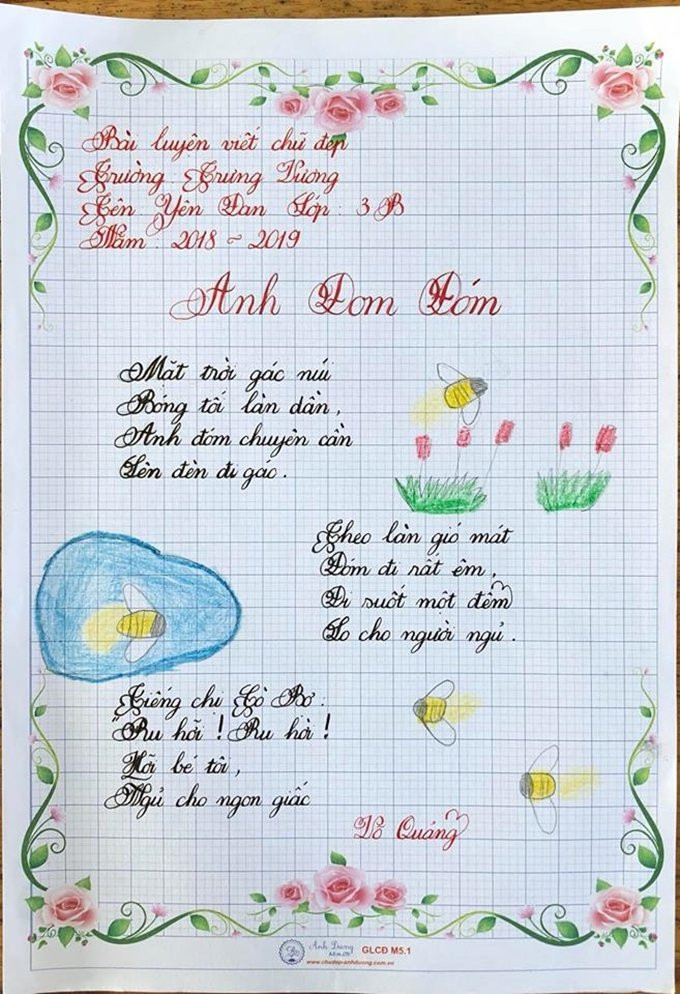 Bài luyện viết chữ đẹp
Trường : Trưng Vương
Tên Yên Đan Lớp : 3B
Năm : 2018 ~ 2019
Anh Đom Đóm
Mặt trời gác núi
Bóng tối lan dần,
Anh đóm chuyên cần
Lên đèn đi gác.
Theo làn gió mát
Đóm đi rất êm,
Đi suốt một đêm
Lo cho người ngủ.
Tiếng chị Cò Bợ :
"Ru hỡi ! Ru hời !
Hỡi bé tôi,
Ngủ cho ngon giấc
Võ Quảng
Ánh Dương
GLCĐ M5.1
www.chudep-anhduong.com.vn